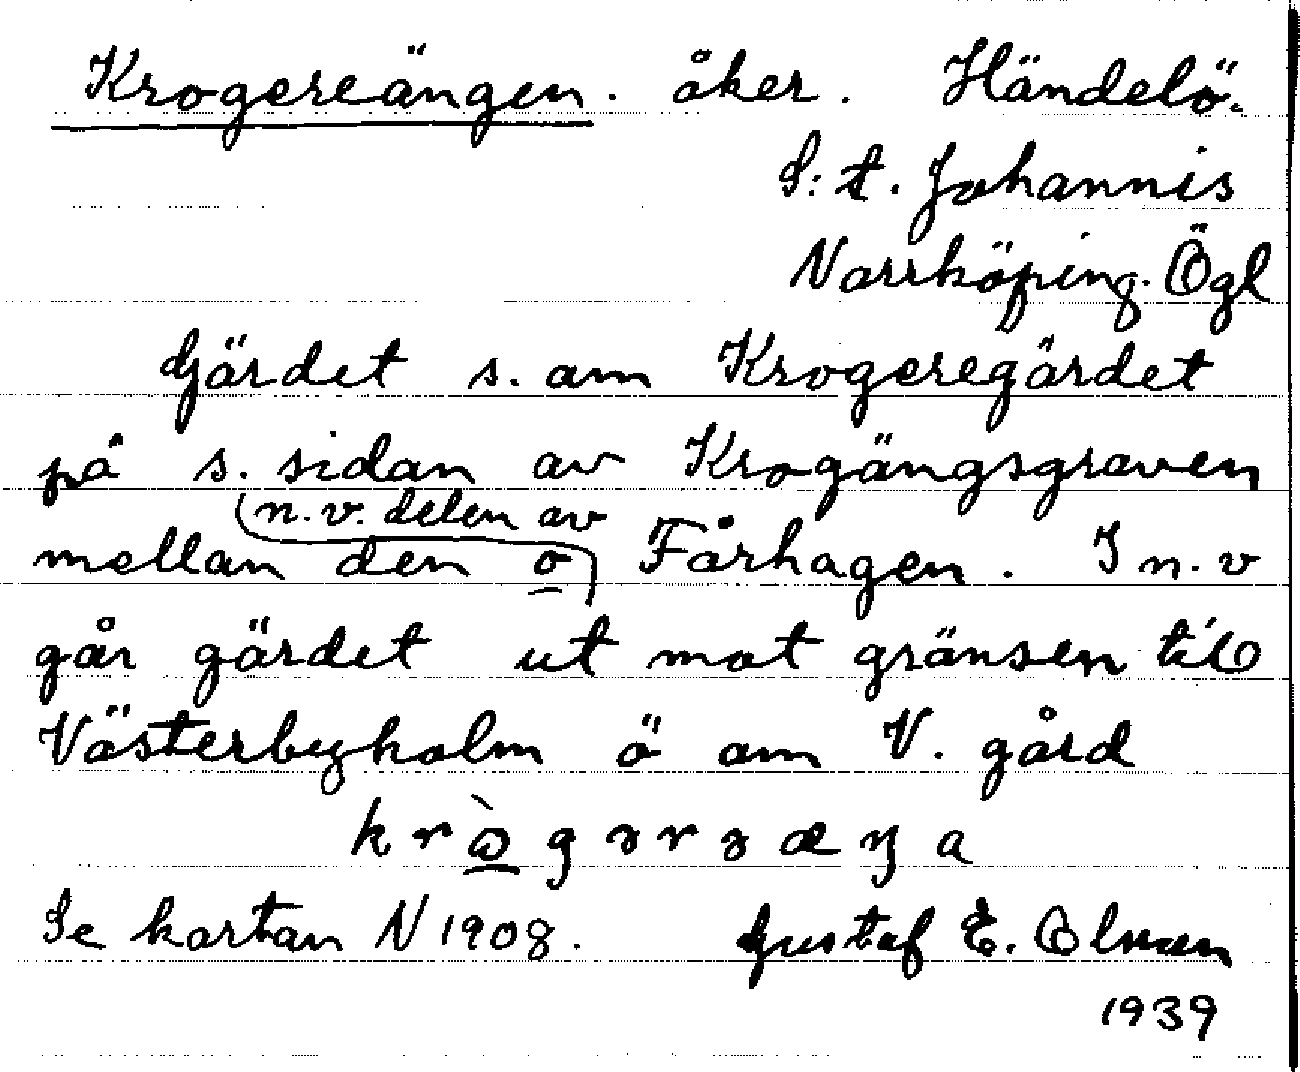 Krogereängen. åker. Händelö.
S:t. Johannis
Norrköping. Ögl
Gärdet s. om Krogeregärdet
på s. sidan av Krogängsgraven
n.v. delen av
mellan den o Fårhagen. I n.v
går gärdet ut mot gränsen till
Västerbyholm ö om V. gård
Se kartan N 1908. Gustaf E. Olsson
1939